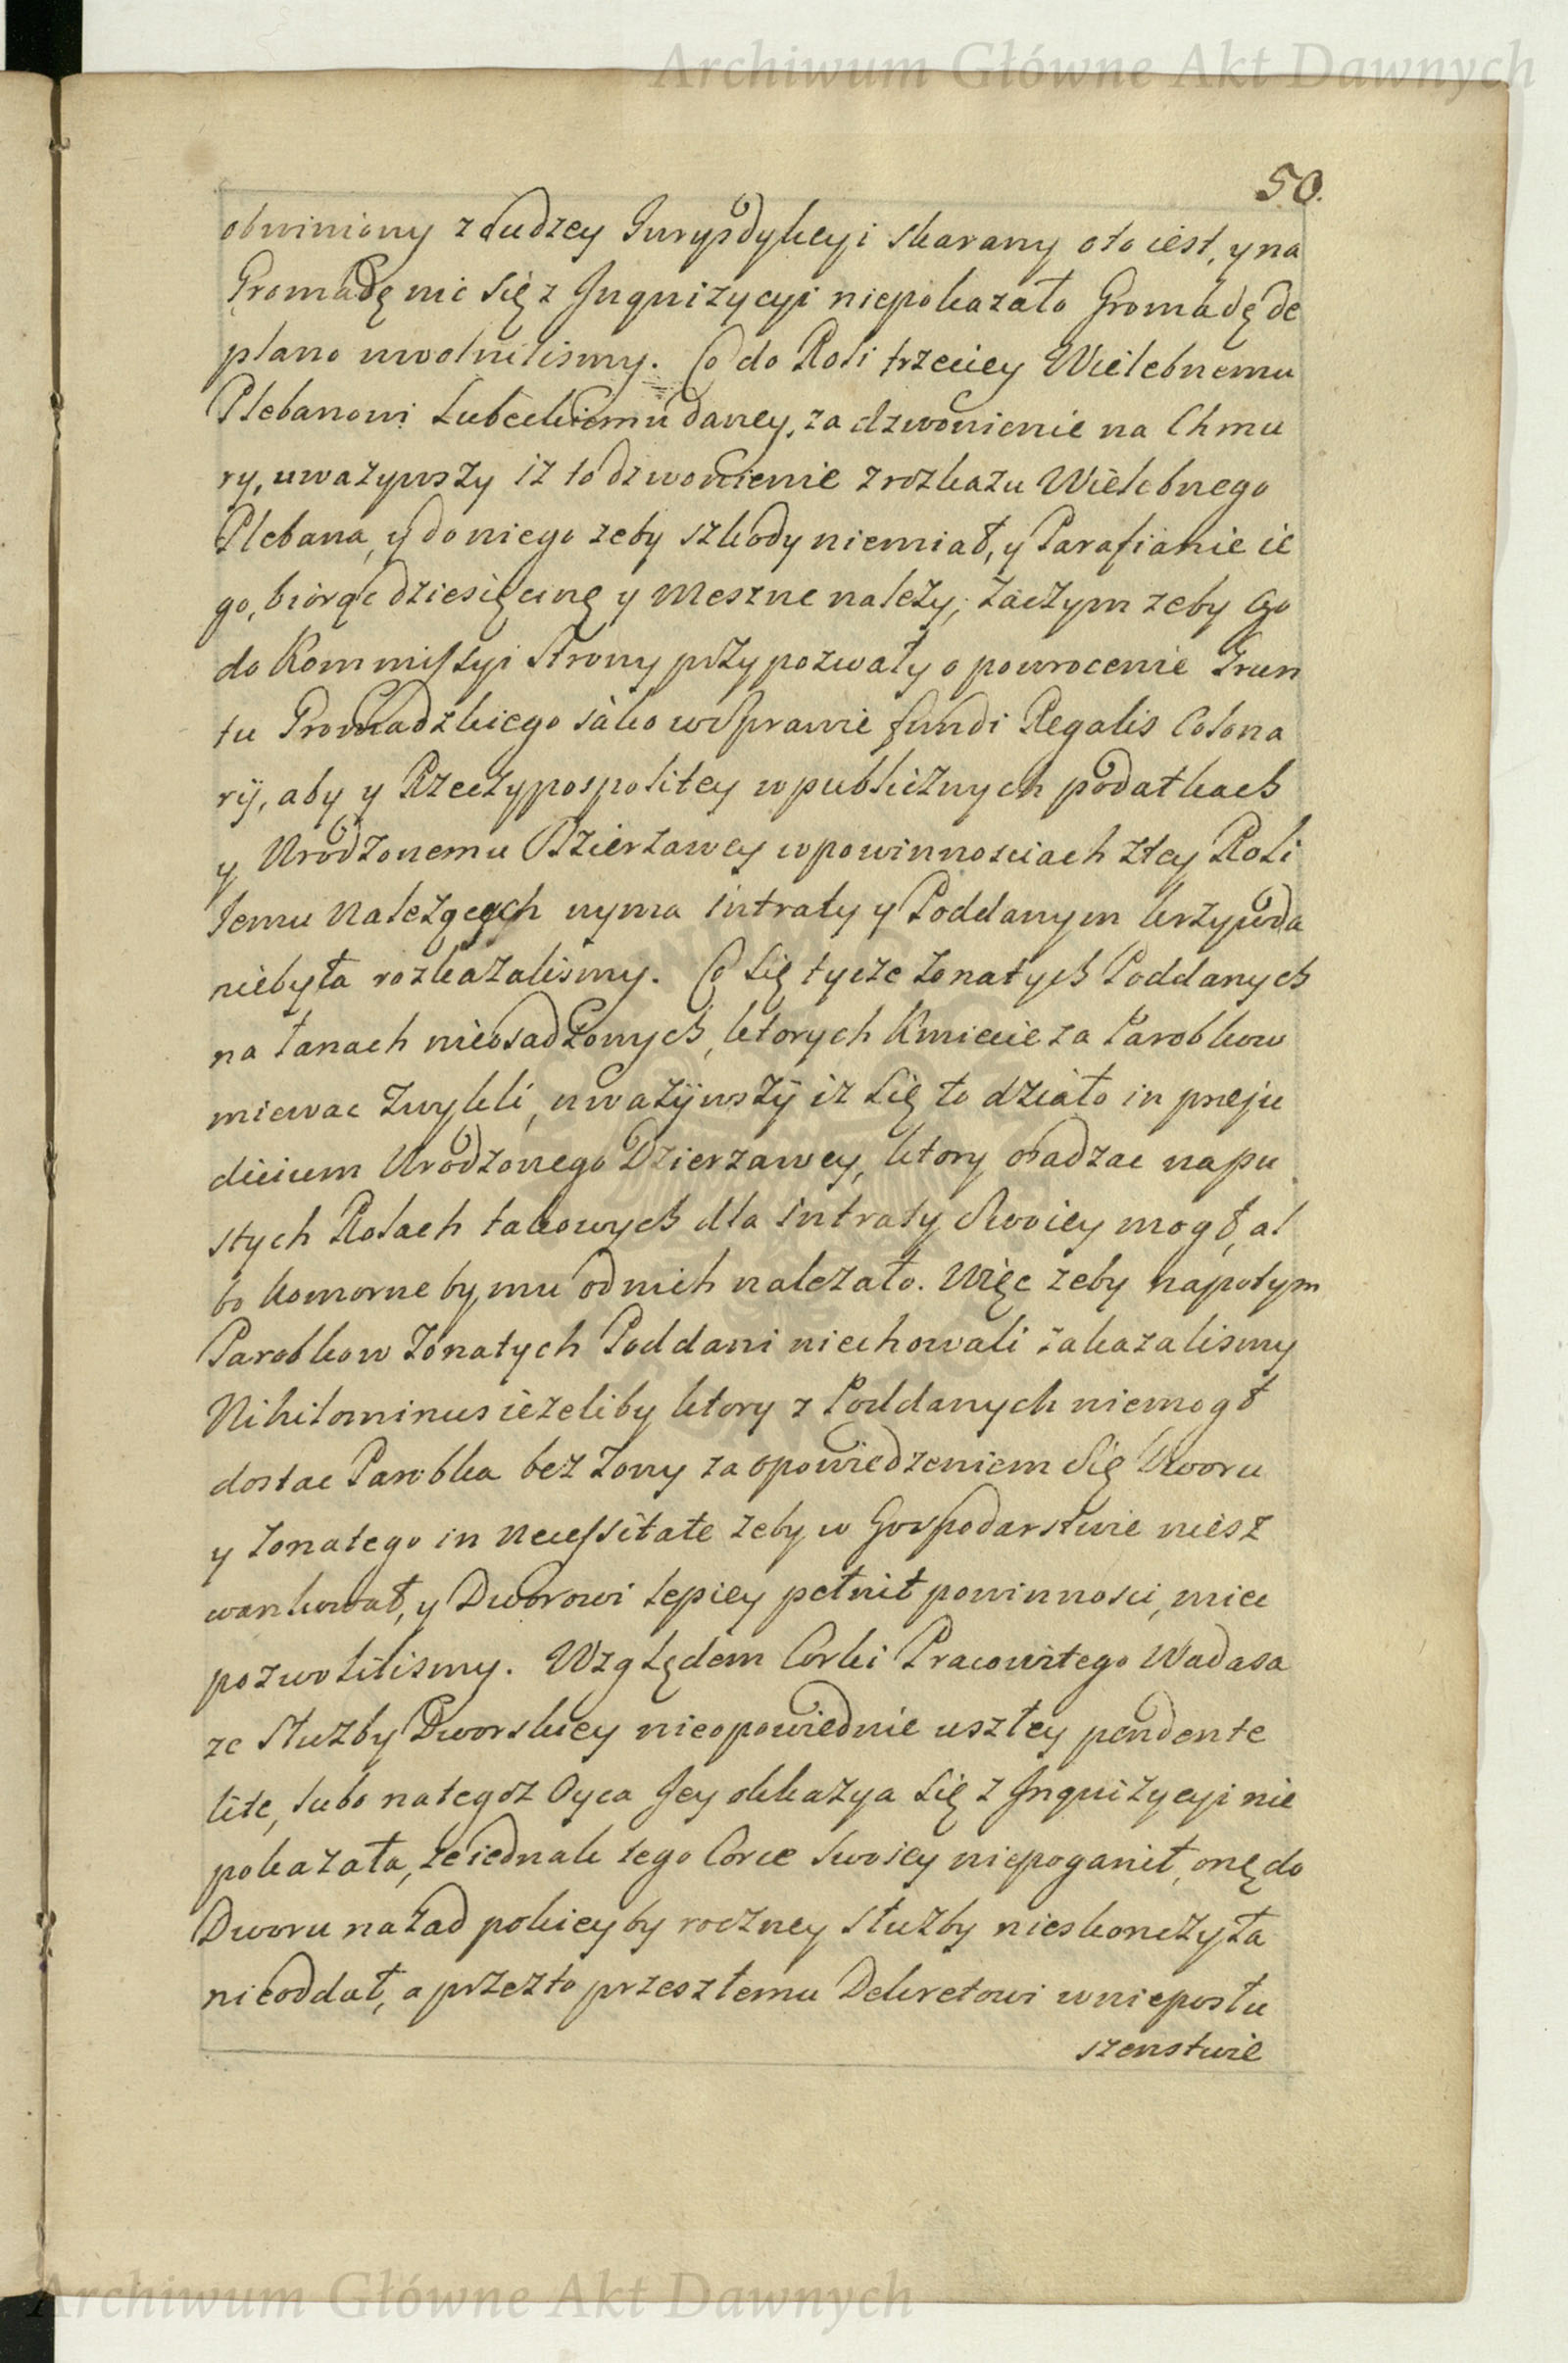 Archiwum Główne Akt Dawnych
50.
obwiniony z Cudzey Jurysdykcyi skarany oto iest, y na
Gromadę nic się z Jnquizycyi niepokazało Gromadę de
plano uwolnilismy. Co do Roli trzeciey Wielebnemu
Plebanowi Lubeckiemu daney, za dzwonienie na Chmu
ry, uwazywszy iz to dzwonienie z rozkazu Wielebnego
Plebana, y do niego zeby szkody niemiał, y Parafianie ie
go, biorąc dziesięcinę y Meszne nalezy; zaczym zeby Go
do Kommissyi Strony przypozwały o powrocenie Grun
tu Gromadzkiego iako w Sprawie fundi Regalis Colona
rij, aby y Rzeczypospolitey w publicznych podatkach
y Urodzonemu Dzierzawcy w powinnosciach z tey Roli
Jemu Nalezących uyma intraty y Poddanym krzywda
niebyła rozkazalismy. Co Się tycze zonatych Poddanych
na łanach nieosadzonych, ktorych Kmiecie za Parobkow
miewac zwykli, uwazywszy iz Się to działo in preju
dicium Urodzonego Dzierzawcy, ktory osadzac na pu
stych Rolach takowych dla intraty Swoiey mogł, al
bo komorne by mu od nich nalezało. Więc zeby napotym
Parobkow zonatych Poddani niechowali zakazalismy
Nihilominus iezeliby ktory z Poddanych niemogł
dostac Parobka bez zony za opowiedzeniem Się Dworu
y zonatego in Necessitate zeby w Gospodarstwie niesz
wankował, y Dworowi lepiey pełnił powinnosci, miec
pozwolilismy. Względem Corki Pracowitego Wadasa
ze Słuzby Dworskiey nieopowiednie uszłey pendente
lite, lubo na tegoz Oyca Jey okkazya Się z Jnquizycyi nie
pokazała, ze iednak tego Corce Swoiey nieganił, onę do
Dworu nazad pokiey by roczney Słuzby nieskonczyła
nieoddał, a przezto przeszłemu Dekretowi w nieposłu
szenstwie
Archiwum Główne Akt Dawnych